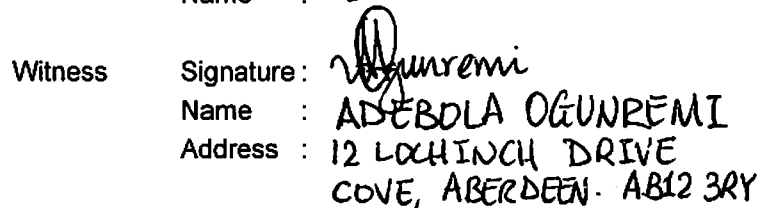 Name :
Witness Signature : Ogunremi
Name : ADEBOLA OGUNREMI
Address : 12 LOCHINCH DRIVE
COVE, ABERDEEN. AB12 3RY